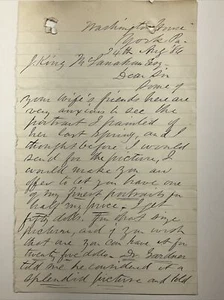 Washington House
York Pa.
24th Aug 86
J. King McLanahan Esq.
Dear Sir
Some of
your wife's friends here are
very anxious to see the
portrait I painted of
her last Spring, and I
thought before I would
send for the picture, I
would make you an
offer to let you have one
of my finest portraits for
half my price. I get
fifty dolls. for that size
picture, and if you wish
that one you can have it for
twenty five dollars. Dr. Gardner
told me he considered it a
splendid picture and told